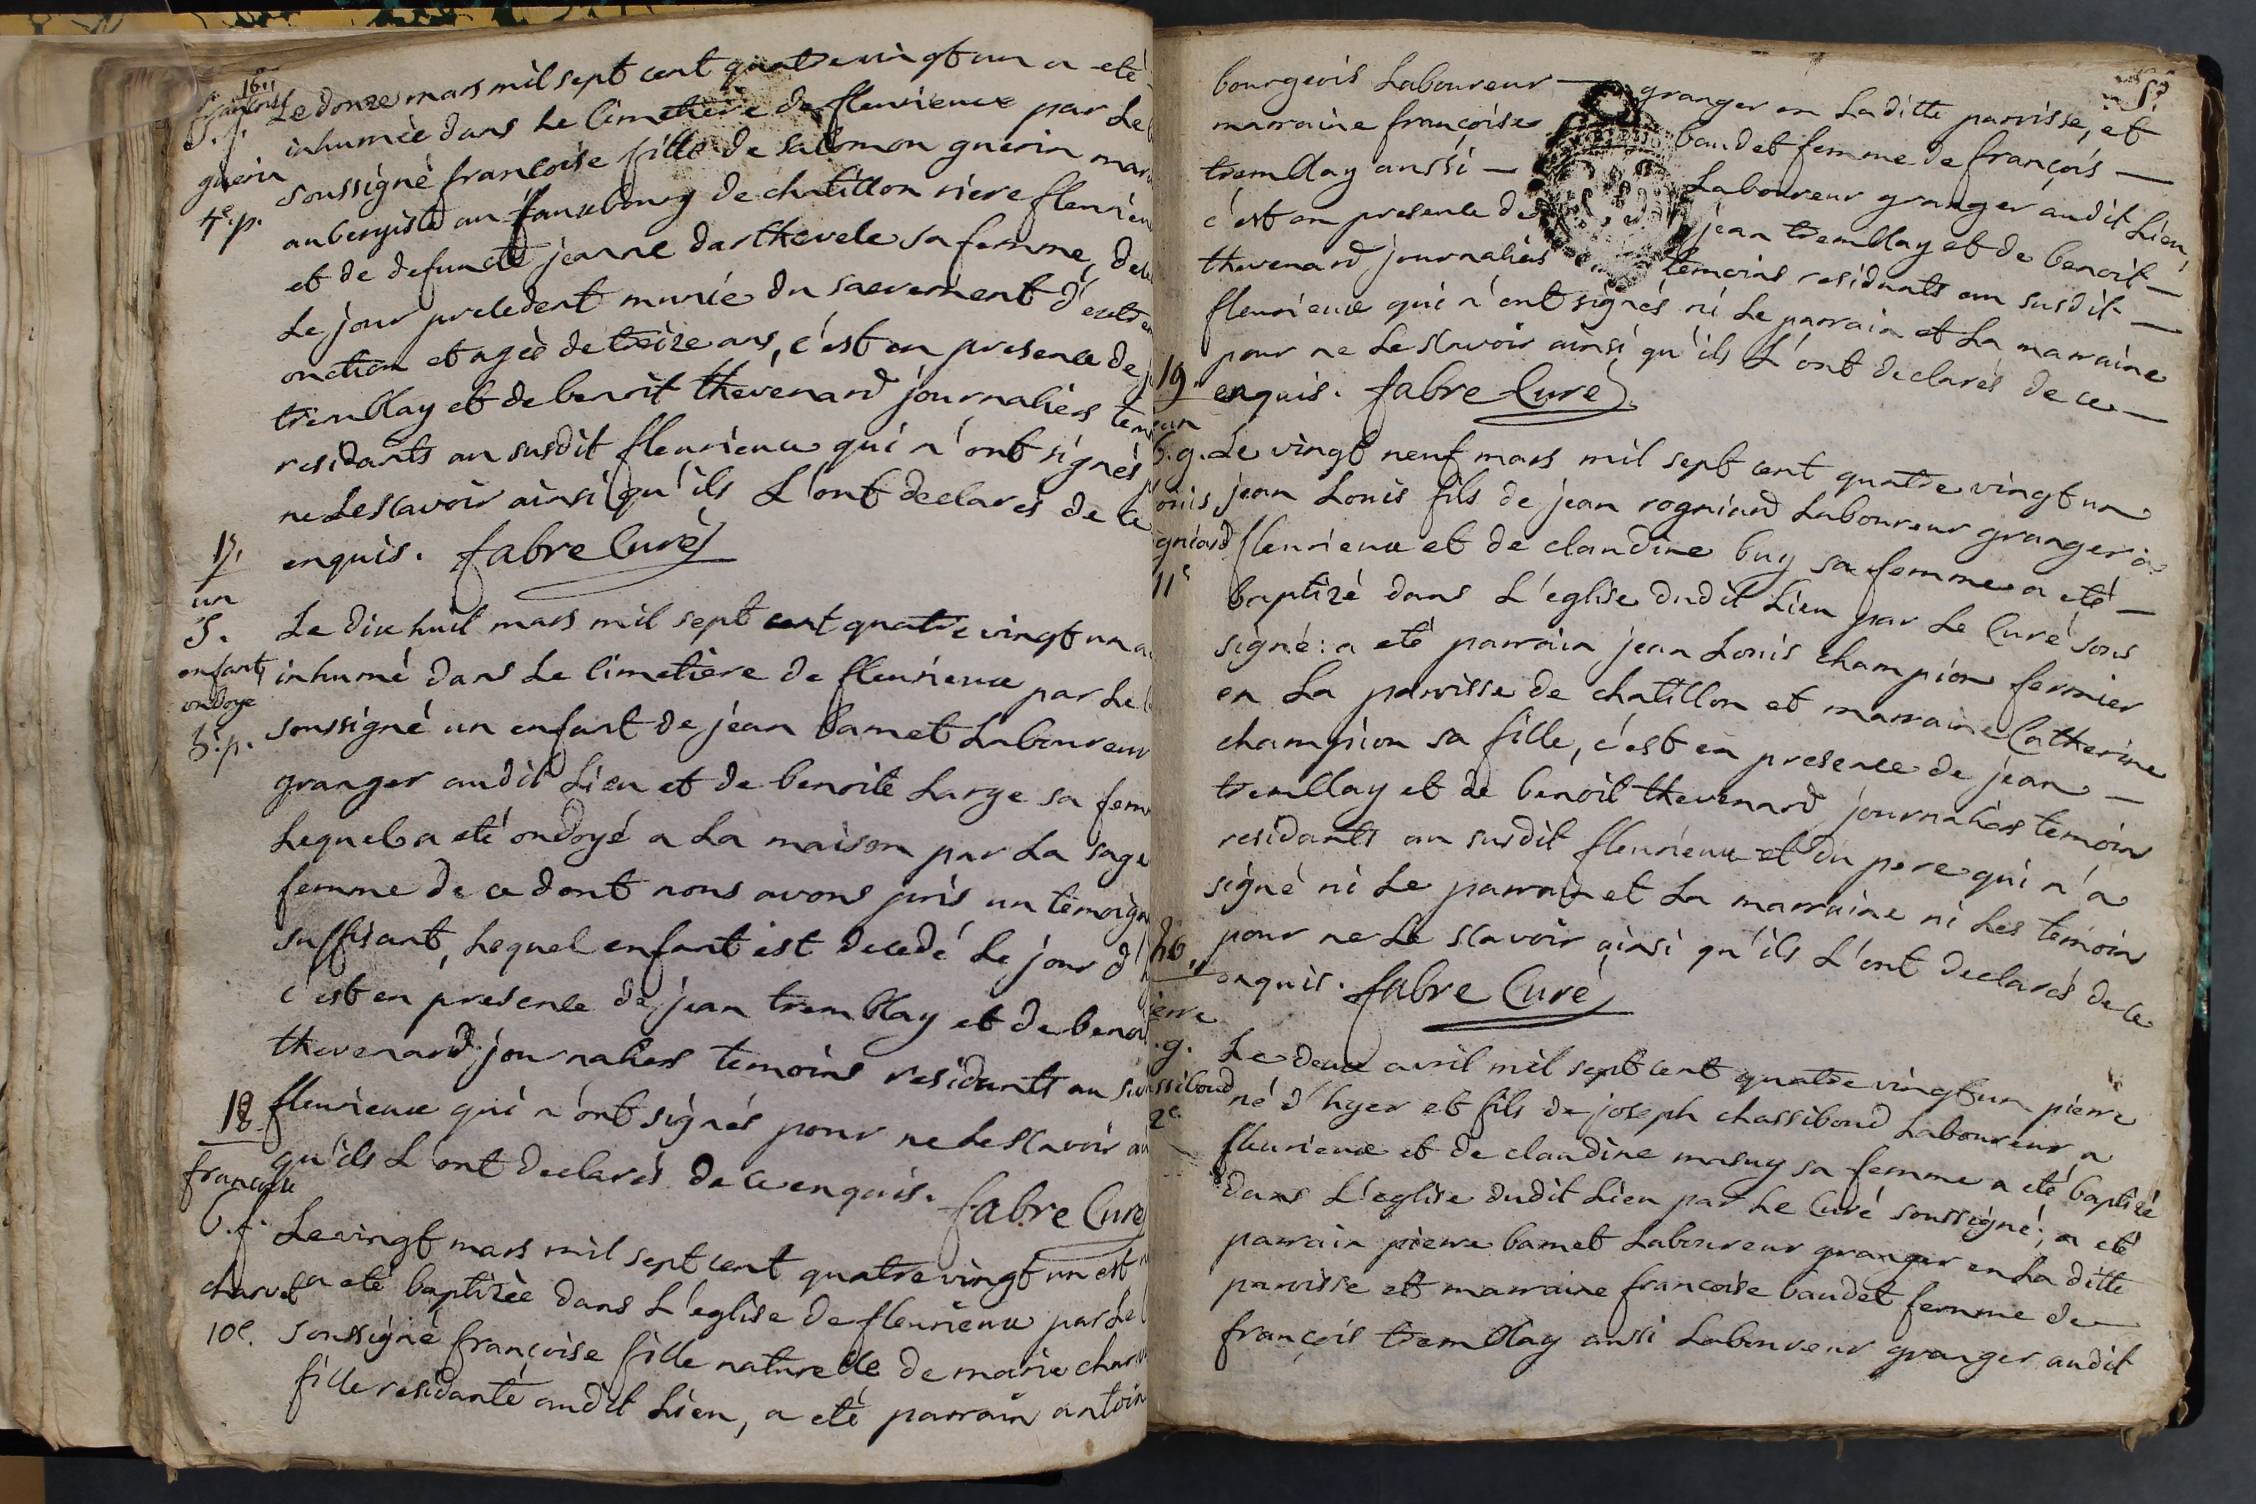 16.
francoise
S. f.
guerin
4e. p.
Le douze mars mil sept cent quatre vingt un a eté
inhumée dans Le Cimetière de fleurieux par Le
soussigné francoise fille de salomon guerin mar
aubergiste au fauxbourg de chatillon riere fleurieu
et de defuncte jeanne darthevele sa femme, dec
Le jour precedent munie du sacrement d'extrem
onction et agée de treize ans, c'est en presence de j
tremblay et de benoit thevenard journaliers tem
residants au susdit fleurieux qui n'ont signés
ne Le scavoir ainsi qu'ils L'ont declarés de ce
enquis. fabre Curé
17.
un
S.
enfant
ondoye
5e. p.
Le dix huit mars mil sept cent quatre vingt un a
inhumé dans Le Cimetière de fleurieux par Le
soussigné un enfant de jean bamet Laboureur
granger audit Lieu et de benoite Large sa fem
Lequel a eté ondoyé a La maison par La sage
femme de ce dont nous avons pris un temoign
suffisant, Lequel enfant est decedé Le jour d'
c'est en presence de jean tremblay et de benoi
thevenard journaliers temoins residants au su
fleurieux qui n'ont signés pour ne Le scavoir ai
qu'ils L'ont declarés de ce enquis. fabre Curé
18.
francoise
b. f.
charvet
10e.
Le vingt mars mil sept cent quatre vingt un est n
a eté baptizée dans L'eglise de fleurieux par Le
soussigné françoise fille naturelle de marie charv
fille residante audit Lieu, a eté parrain antoin
5e
bourgeois Laboureur — granger en Laditte parroisse, et
marraine françoise baudet femme de françois —
tremblay aussi — Laboureur granger audit Lieu,
c'est en presence de jean tremblay et de benoit —
thevenard journaliers temoins residants au susdit —
fleurieux qui n'ont signés ni Le parrain et La marraine
pour ne Le scavoir ainsi qu'ils L'ont declarés de ce —
enquis. fabre Curé
19.
ean
b. g.
ouis
gniard
11e
Le vingt neuf mars mil sept cent quatre vingt un
jean Louis fils de jean rogniard Laboureur granger à
fleurieux et de claudine buy sa femme a eté —
baptizé dans L'eglise dudit Lieu par Le Curé sous
signé: a eté parrain jean Louis champion fermier
en La parroisse de chatillon et marraine Catherine
champion sa fille, c'est en presence de jean —
tremblay et de benoit thevenard journaliers temoins
residants au susdit fleurieux et du pere qui n'a
signé ni Le parrain et La marraine ni Les temoins
pour ne Le scavoir ainsi qu'ils L'ont declarés de ce
enquis. fabre Curé
ierre
. g.
ssiboud
2e
Le deux avril mil sept cent quatre vingt un pierre
né d'hyer et fils de joseph chassiboud Laboureur a
fleurieux et de claudine masuy sa femme a eté baptizé
dans L'eglise dudit Lieu par Le Curé soussigné; a eté
parrain pierre bamet Laboureur granger en La ditte
parroisse et marraine francoise baudet femme de —
françois tremblay aussi Laboureur granger audit